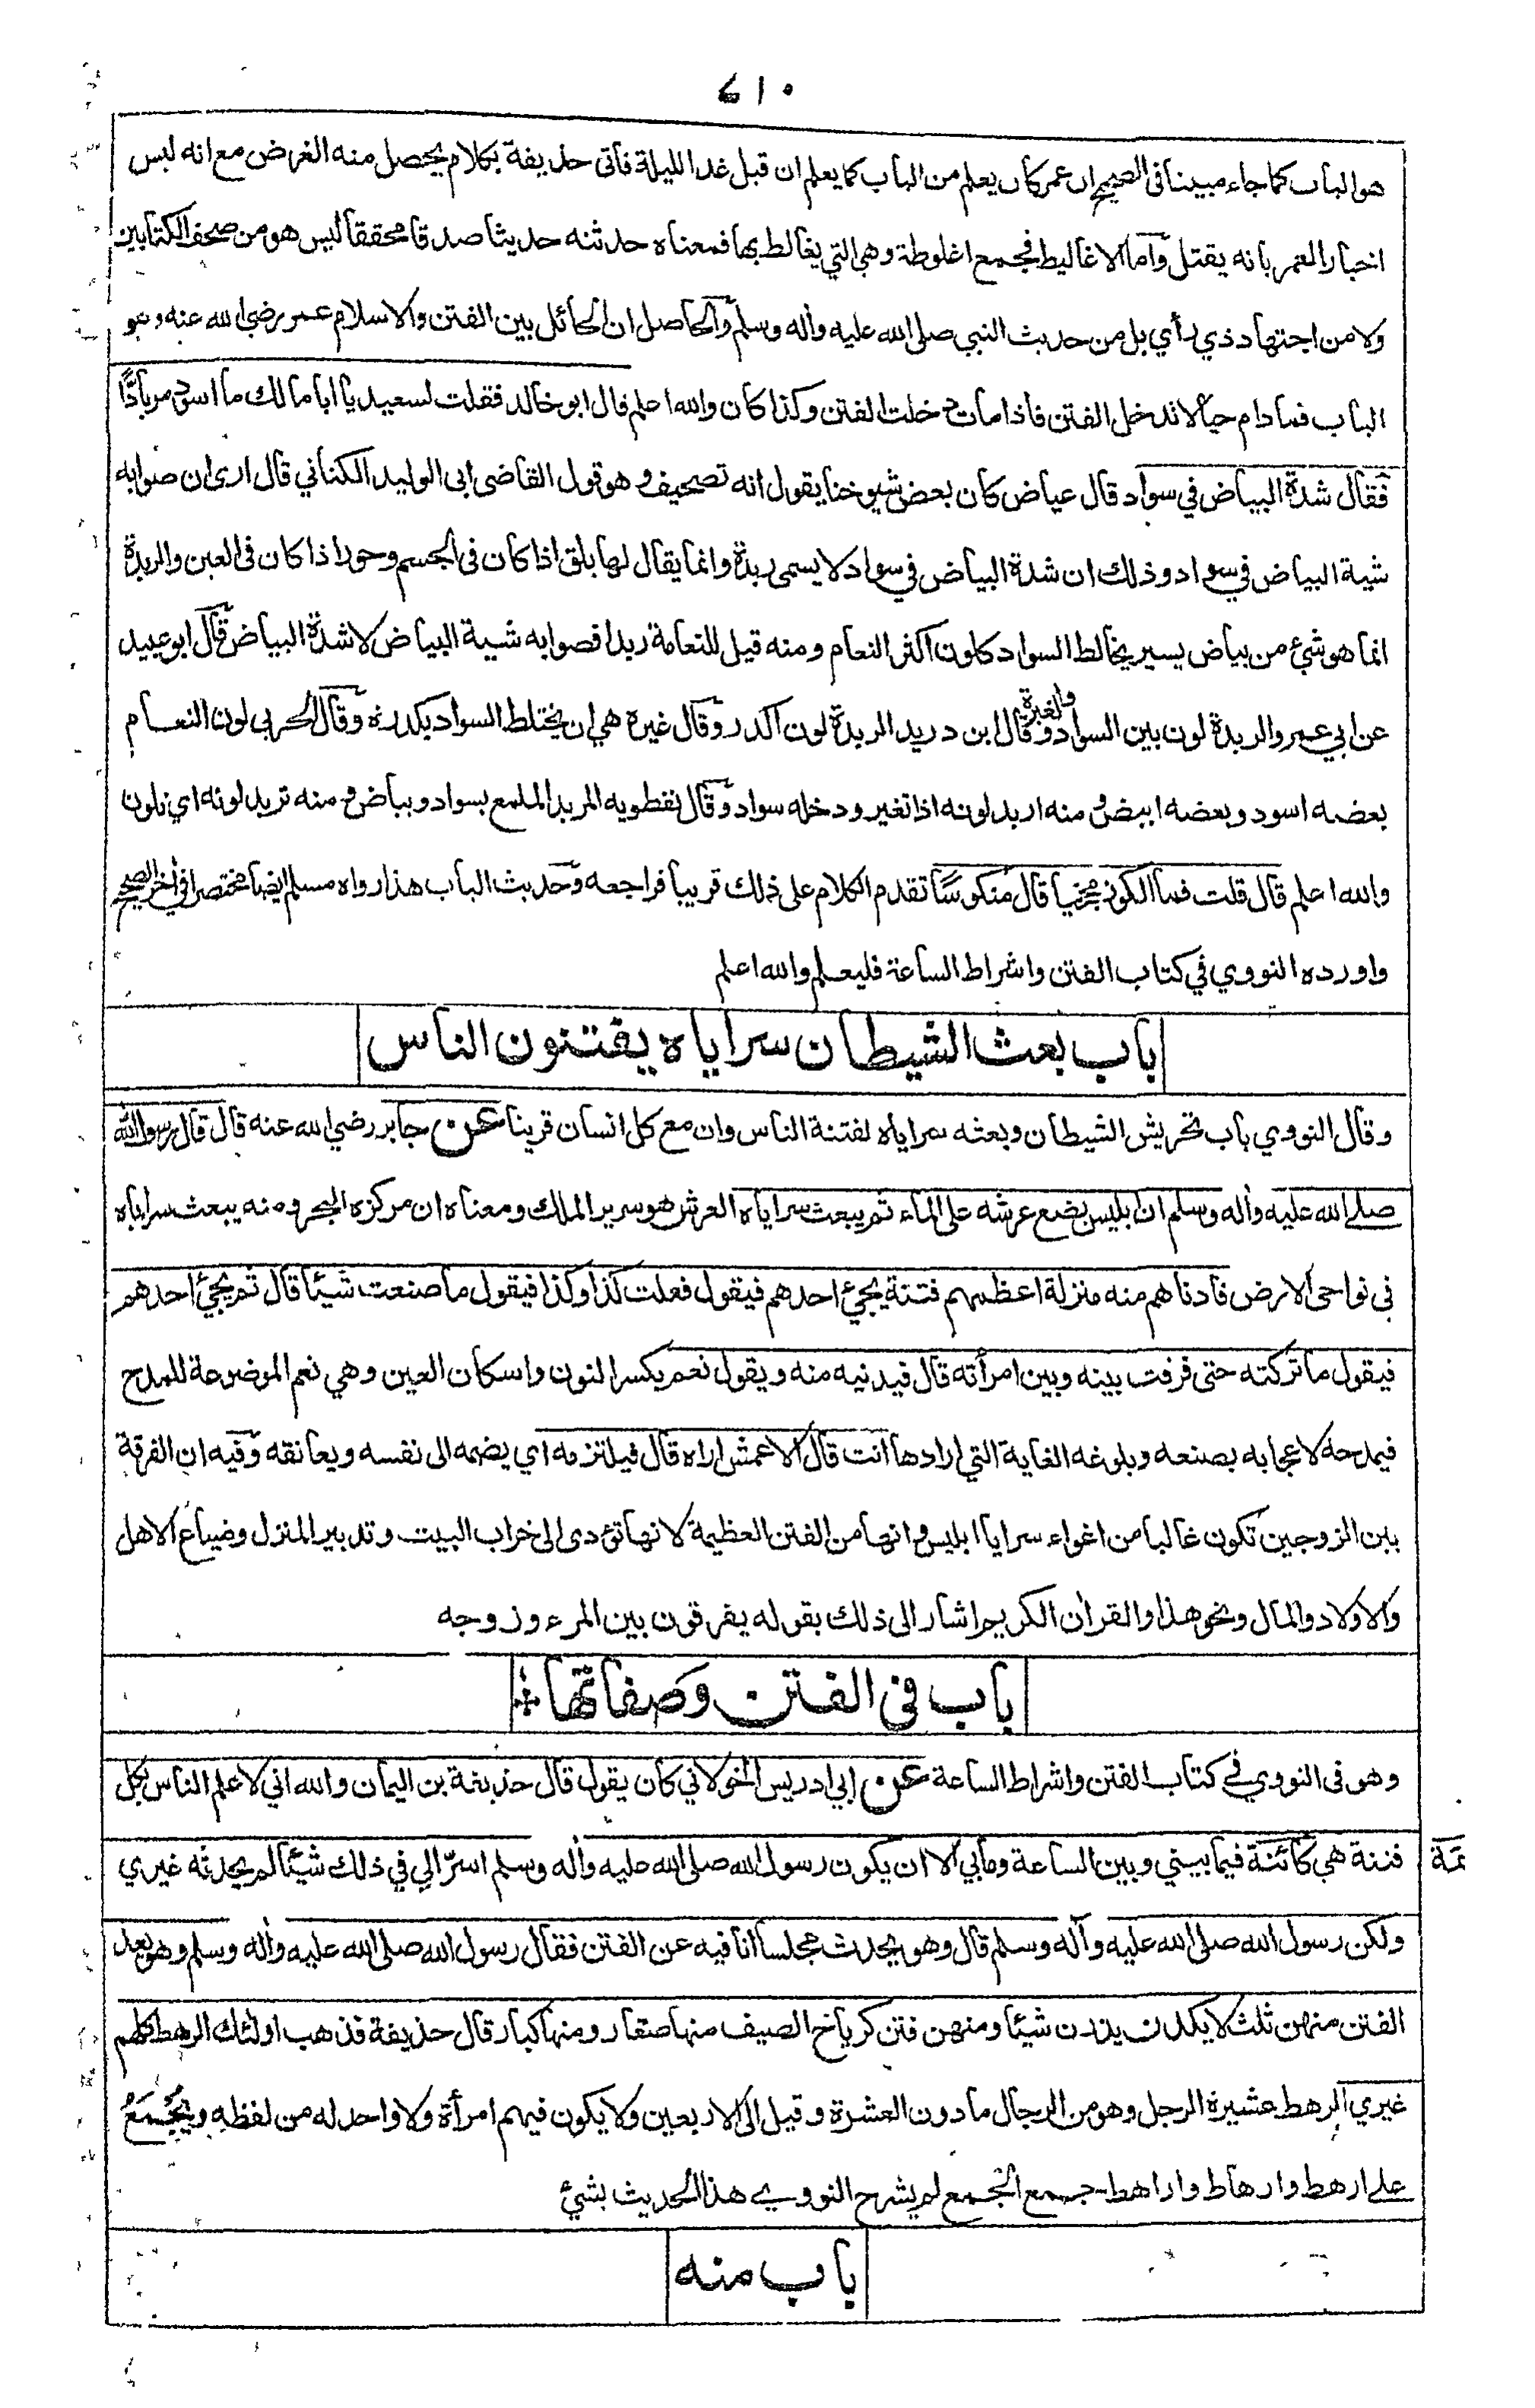 ٦١٠
هو الباب كما جاء مبينا فى الصحيح ان عمر كان يعلم من الباب كما يعلم ان قبل غد الليلة فأتى حذيفة بكلام يحصل منه الغرض مع انه ليس
اخبار العمر بانه يقتل واما الاغاليط فجمع اغلوطة وهي التي يغالط بها فمعناه حدثته حديثا صدقا محققا ليس هو من صحف الكتابيين
ولا من اجتهاد ذي رأي بل من حديث النبي صلى الله عليه واٰله وسلم والحاصل ان الحائل بين الفتن والاسلام عمر رضي الله عنه وهو
الباب فما دام حيا لا تدخل الفتن فاذا مات دخلت الفتن وكذا كان والله اعلم قال ابو خالد فقلت لسعيد يا ابا مالك ما اسود مربادًّا
فقال شدة البياض في سواد قال عياض كان بعض شيوخنا يقول انه تصحيف وهو قول القاضى ابى الوليد الكناني قال ارى ان صوابه
شبة البياض في سواد وذلك ان شدة البياض في سواد لا يسمى ربدة وانما يقال لها بلق اذا كان فى الجسم وحورا ذا كان فى العين والربدة
انما هو شئ من بياض يسير يخالط السواد كلون اكثر النعام ومنه قيل للنعامة ربدا فصوابه شبة البياض لا شدة البياض قال ابو عبيد
عن ابي عمرو الربدة لون بين السواد والغبرة وقال ابن دريد الربدة لون اكدر وقال غيره هي ان يختلط السواد بكدرة وقال الحربى لون النعام
بعضه اسود وبعضه ابيض ومنه اربد لونه اذا تغير ودخله سواد وقال نفطويه المربد الملمع بسواد وبياض ومنه تربد لونه اي تلون
والله اعلم قال قلت فما الكوز مجخيا قال منكوسًا تقدم الكلام على ذلك قريبا فراجعه وحديث الباب هذا رواه مسلم ايضا مختصرا في اٰخر الصحيح
واورده النووي في كتاب الفتن واشراط الساعة فليعلم والله اعلم
باب بعث الشيطان سراياه يفتنون الناس
وقال النووي باب تحريش الشيطان وبعثه سراياه لفتنة الناس وان مع كل انسان قرينا عن جابر رضي الله عنه قال قال رسول الله
صلى الله عليه واٰله وسلم ان ابليس يضع عرشه على الماء ثم يبعث سراياه العرش هو سرير الملك ومعناه ان مركزه البحر ومنه يبعث سراياه
فى نواحى الارض فأدناهم منه منزلة اعظمهم فتنة يجئ احدهم فيقول فعلت كذا وكذا فيقول ما صنعت شيئا قال ثم يجئ احدهم
فيقول ما تركته حتى فرقت بينه وبين امرأته قال فيدنيه منه ويقول نعم بكسر النون واسكان العين وهي نعم الموضوعة للمدح
فيمدحه لاعجابه بصنعه وبلوغه الغاية التي ارادها انت قال الاعمش اراه قال فيلتزمه اي يضمه الى نفسه ويعانقه وفيه ان الفرقة
بين الزوجين تكون غالبا من اغواء سرايا ابليس وانها من الفتن العظيمة لانها تؤدى الى خراب البيت وتدبير المنزل وضياع الاهل
والاولاد والمال ونحو هذا والقراٰن الكريم اشار الى ذلك بقوله يفرقون بين المرء وزوجه
باب فى الفتن وصفاتها
وهو فى النووي في كتاب الفتن واشراط الساعة عن ابي ادريس الخولاني كان يقول قال حذيفة بن اليمان والله اني لاعلم الناس بكل
فتنة هي كائنة فيما بيني وبين الساعة وما بي الا ان يكون رسول الله صلى الله عليه واٰله وسلم اسرّ الي في ذلك شيئا لم يحدثه غيري
ثمة
ولكن رسول الله صلى الله عليه واٰله وسلم قال وهو يحدث مجلسا انا فيه عن الفتن فقال رسول الله صلى الله عليه واٰله وسلم وهو يعد
الفتن منهن ثلث لا يكدن يذرن شيئا ومنهن فتن كرياح الصيف منها صغار ومنها كبار قال حذيفة فذهب اولئك الرهط كلهم
غيري الرهط عشيرة الرجل وهو من الرجال ما دون العشرة وقيل الى الاربعين ولا يكون فيهم امرأة ولا واحد له من لفظه ويُجْمَعُ
على ارهط وارهاط واراهط جمع الجمع لم يشرح النووي هذا الحديث بشئ
باب منه